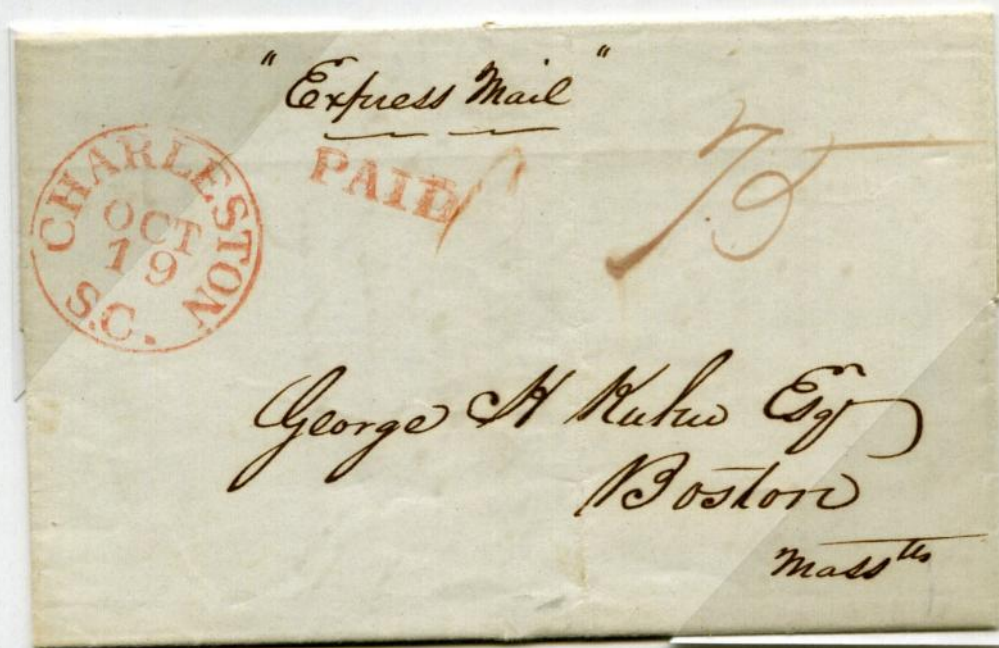 "Express Mail"
CHARLESTON
OCT
19
S.C.
PAID
75
George H Kuhn Esqr
Boston
Masstts